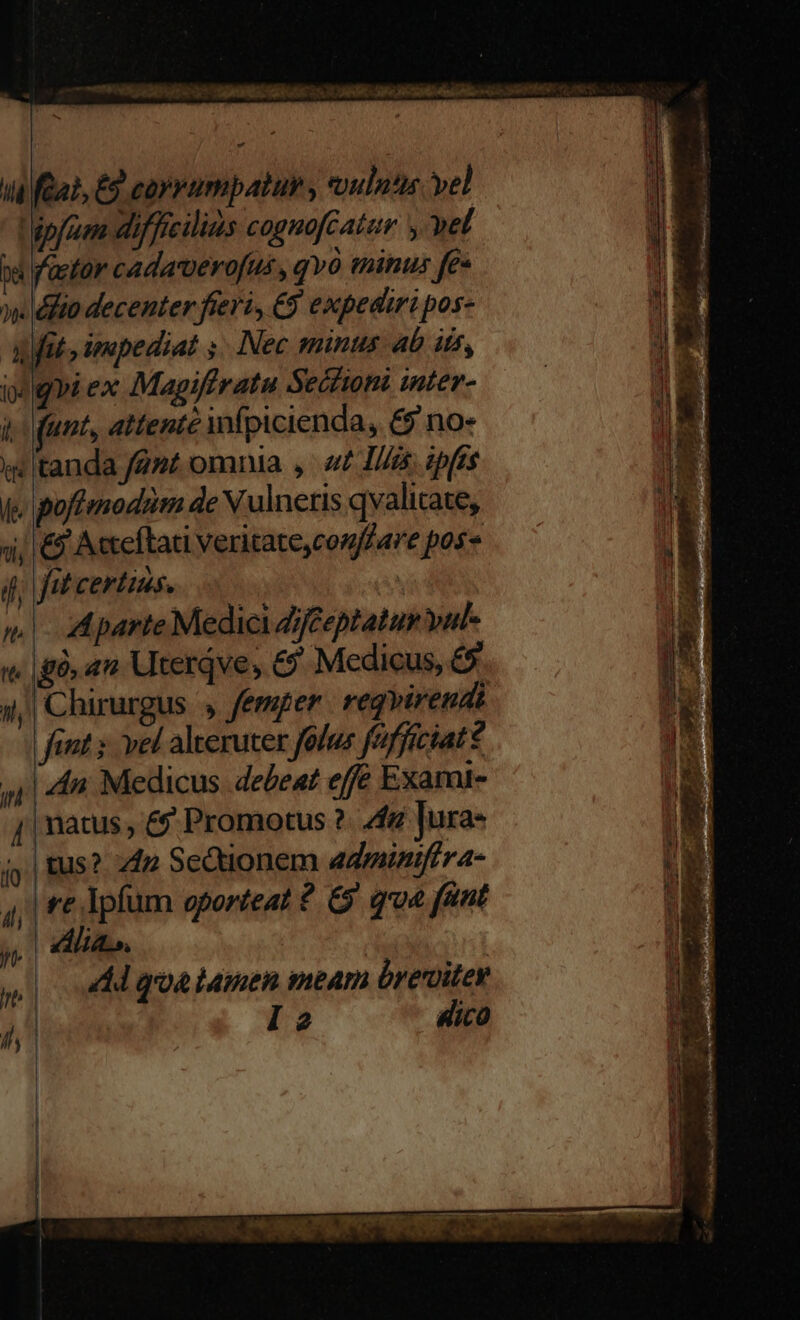 ſcat, & corrumpatur, vulnus vel
ipſum difficiliùs cognoſcatur, vel
fœtor cadaveroſus, qvò minus ſe-
ctio decenter fieri, & expediri pos-
ſit, impediat; Nec minus ab iis,
qvi ex Magiſtratu Sectioni inter-
ſunt, attentè inſpicienda, & no-
tanda ſunt omnia, ut Illis ipſis
poſtmodùm de Vulneris qvalitate,
& Atteſtati veritate, conſtare pos-
ſit certiùs.
A parte Medici diſceptatur vul-
gò, an Uterqve, & Medicus, &
Chirurgus, ſemper reqvirendi
ſint; vel alteruter ſolus ſufficiat?
An Medicus debeat eſſe Exami-
natus, & Promotus? An Jura-
tus? An Sectionem adminiſtra-
re Ipſum oporteat? & qvæ ſunt
Alia.
Ad qvæ tamen meam breviter
I 2 dico